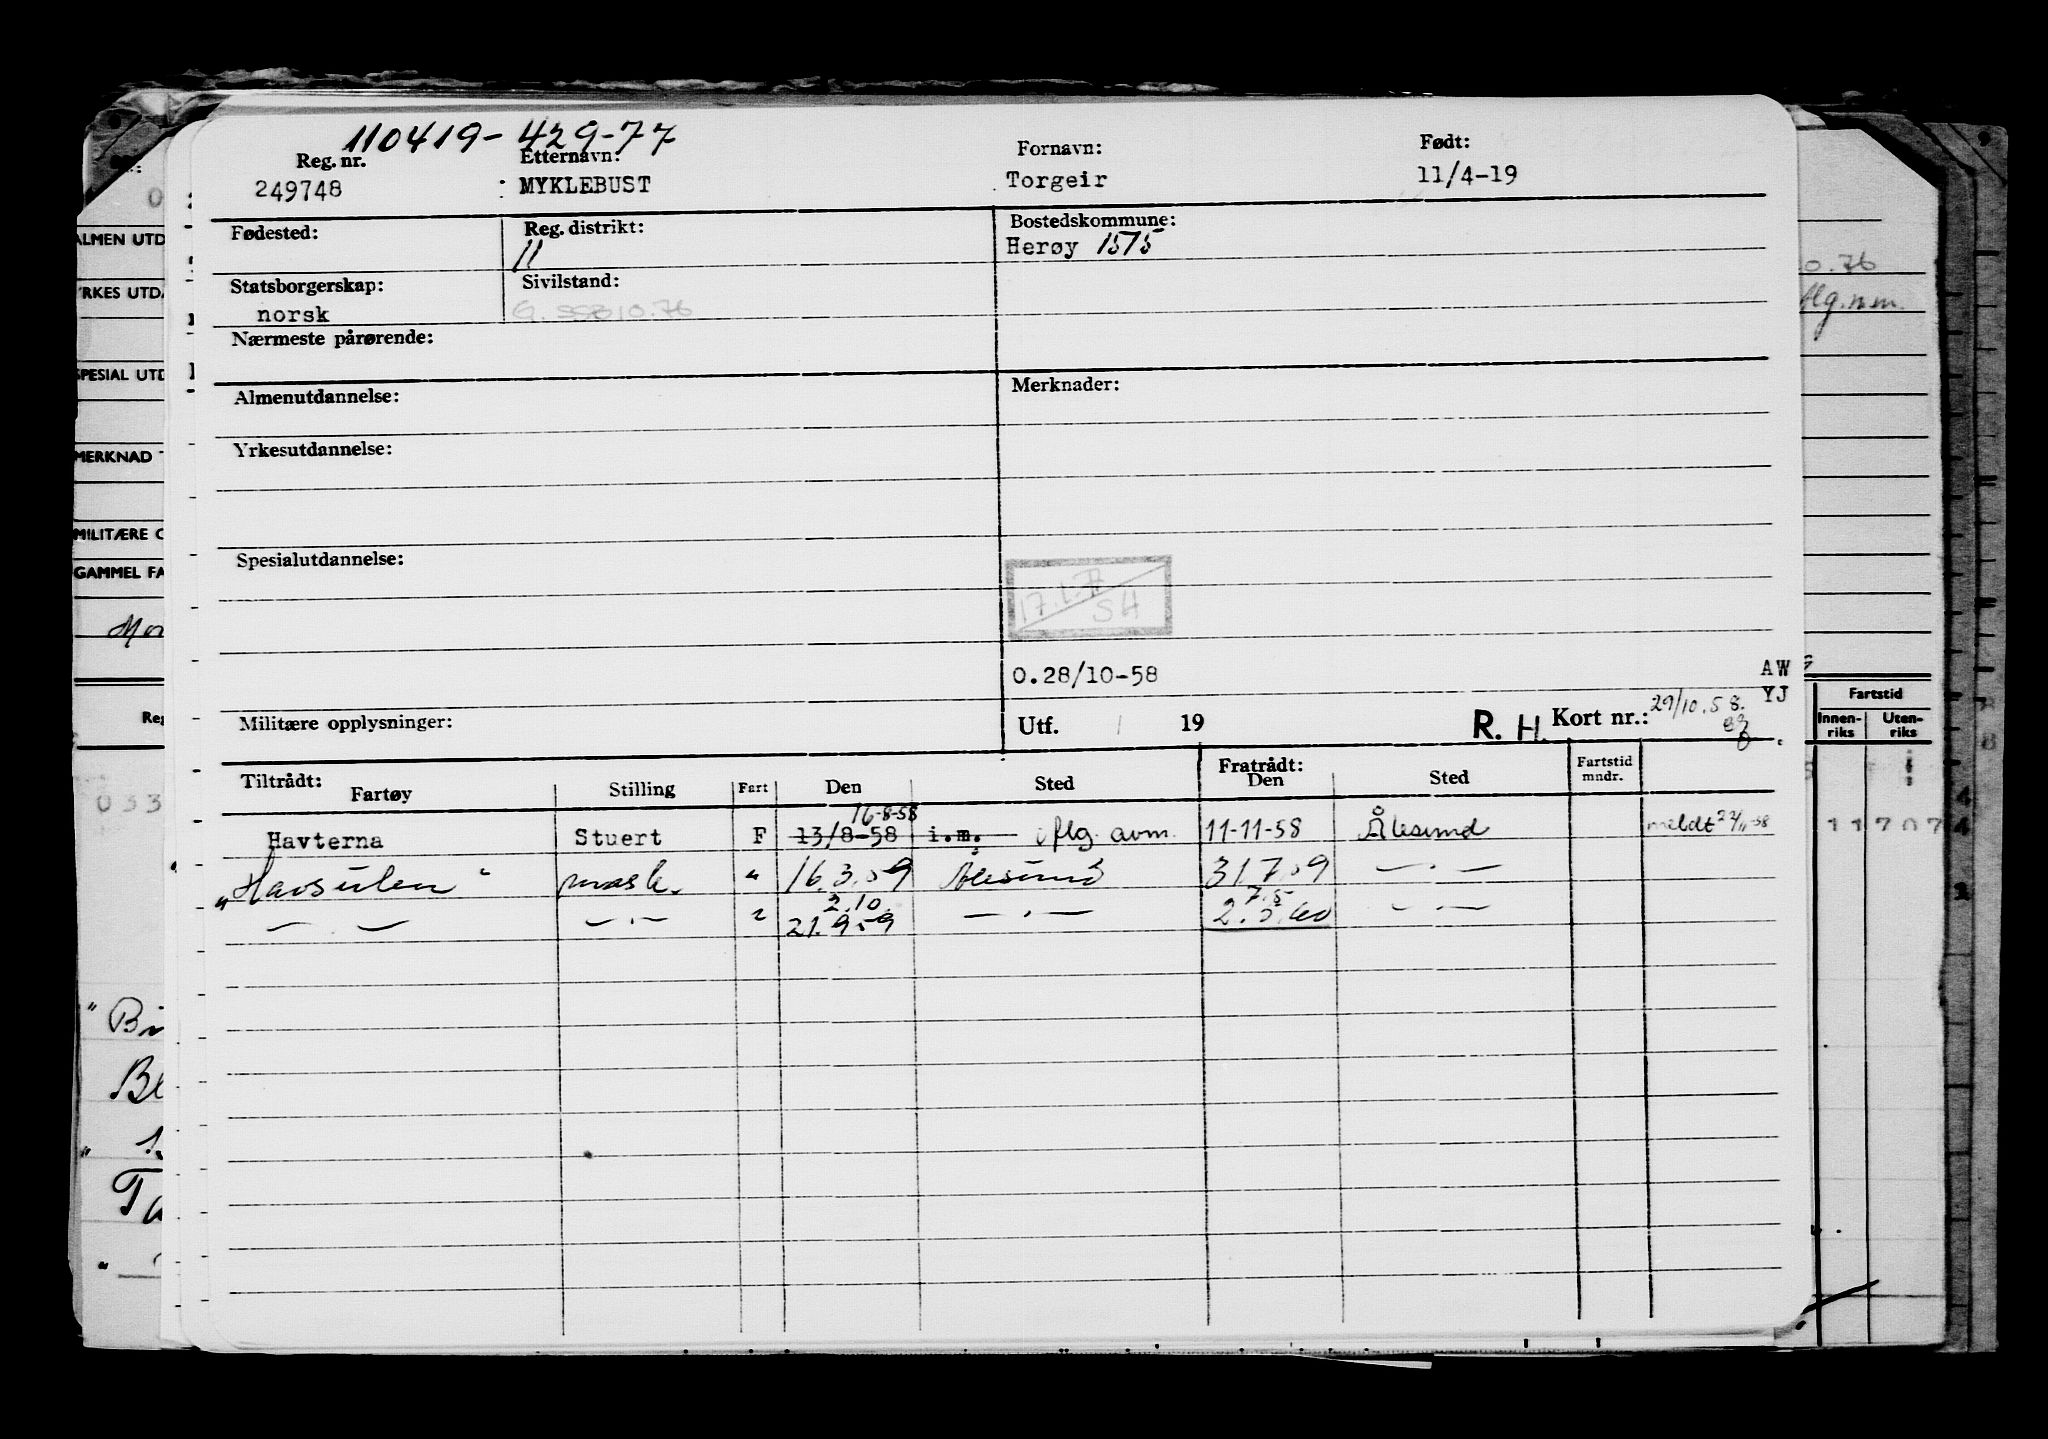 110419-429-77
Reg. nr. Etternavn: Fornavn: Født:
249748 MYKLEBUST Torgeir 11/4-19
Fødested: Reg. distrikt: 11 Bostedskommune: Herøy 1575
Statsborgerskap: norsk Sivilstand: G. SSB 10.76
Nærmeste pårørende:
Almenutdannelse: Merknader:
Yrkesutdannelse:
Spesialutdannelse:
SH
0.28/10-58 AW
YJ
Militære opplysninger: Utf. 19 R. H. Kort nr.: 29/10.58.
Tiltrådt: Fratrådt:
Fartøy Stilling Fart Den Sted Den Sted Fartstid mndr.
16-8-58
Havterna Stuert F 13/8-58 i.m. iflg. avm. 11-11-58 Ålesund meldt 22/11-58
"Havsulen" mask. " 16.3.59 Ålesund 31.7.59 — . —
2.10. 7.5
— . — — . — " 21.9.59 — . — 2.5.60 — . —
ALMEN UTD
YRKES UTDA
SPESIAL UTD
MERKNAD
MILITÆRE O
GAMMEL FA
Mor
Reg
033
"Bi
Be
Ta
0.76
flg. n.m.
Fartstid
Innen-riks Uten-riks
11707